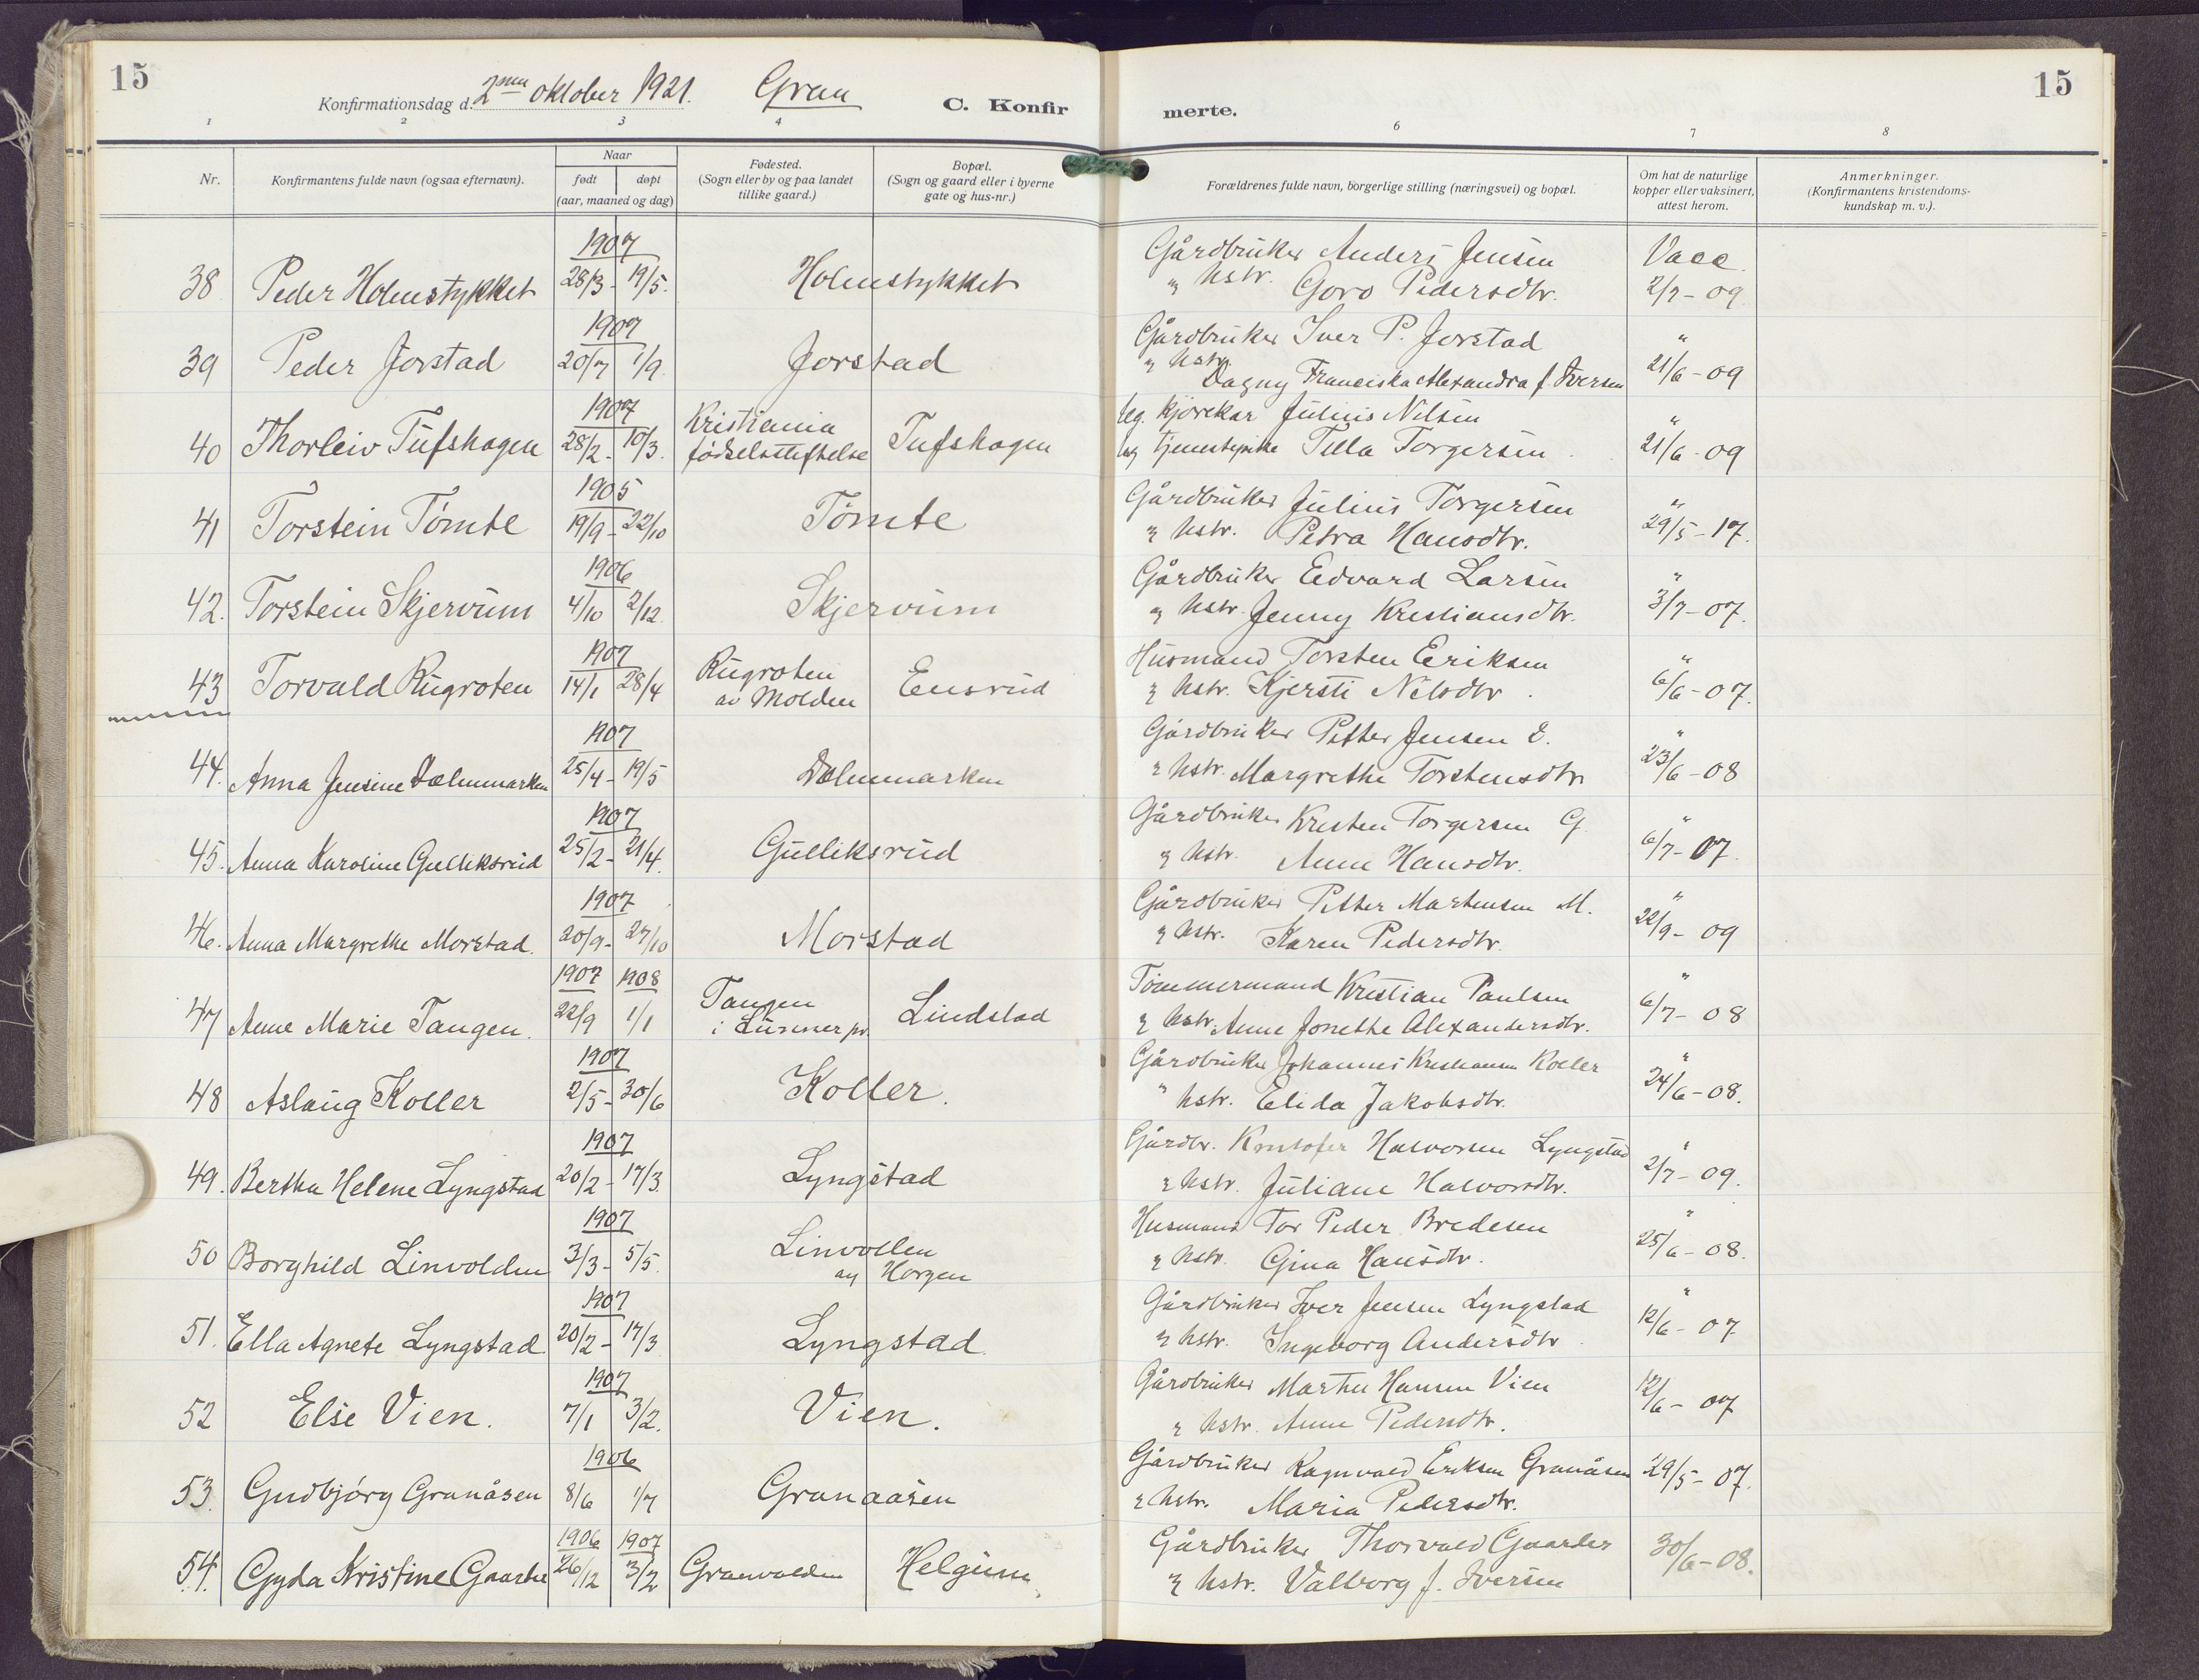 15
Konfirmationsdag d. 2nen oktober 1921. Gran C. Konfir merte.
15
1 2 3 4 6 7 8
Nr. Konfirmantens fulde navn (ogsaa efternavn). Naar født døpt (aar, maaned og dag) Fødested. (Sogn eller by og paa landet tillike gaard.) Bopæl. (Sogn og gaard eller i byerne gate og hus-nr.) Forældrenes fulde navn, borgerlige stilling (næringsvei) og bopæl. Om hat de naturlige kopper eller vaksinert, attest herom. Anmerkninger. (Konfirmantens kristendoms-kundskap m. v.).
1907 Gårdbruker Anders Jensen Vacc.
38 Peder Holmstykket 28/3 - 19/5. Holmstykket " hstr. Goro Pedersdtr. 2/7 - 09
1907 Gårdbruker Iver P. Jorstad "
39 Peder Jorstad 20/7 1/9. Jorstad " hstr. Dagny Franciska Alexandra f. Iversen 21/6 - 09
1907 Kristiania Ug. kjørekar Julius Nilsen "
40 Thorleiv Tufshagen 28/2 - 10/3. fødselsstiftelse Tufshagen ug tjenestepike Tilla Torgersen. 21/6 - 09
1905 Gårdbruker Julius Torgersen "
41 Torstein Tømte 19/9 - 22/10 Tømte " hstr. Petra Hansdtr. 29/5 - 17.
1906 Gårdbruker Edvard Larsen "
42. Torstein Skjervum 4/10 2/12. Skjervum " hstr. Jenny Kristiansdtr. 3/7 - 07.
1907 Rugroten Husmand Torsten Eriksen "
43 Torvald Rugroten 14/1 28/4 av Molden Ensrud " hstr. Kjersti Nilsdtr. 6/6 - 07.
1907 Gårdbruker Petter Jensen D. "
44. Anna Jensine Dælenmarken 25/4 - 19/5 Dælenmarken " hstr. Margrethe Torstensdtr 23/6 - 08
1907 Gårdbruker Kristen Torgersen G. "
45. Anna Karoline Gulliksrud 25/2 - 21/4. Gulliksrud " hstr. Anne Hansdtr. 6/7 - 07.
1907 Gårdbruker Petter Martensen M. "
46. Anna Margrethe Morstad. 20/9 - 27/10 Morstad " hstr. Karen Pedersdtr. 22/9 - 09
1907 1908 Tangen Tømmermand Kristian Paulsen "
47 Anne Marie Tangen. 22/9 1/1 i Lunner pr. Lindstad " hstr. Anne Jonethe Alexandersdtr. 6/7 - 08
1907 Gårdbruker Johannes Kristiansen Koller "
48 Aslaug Koller 2/5 - 30/6 Koller. " hstr. Elida Jakobsdtr. 24/6 - 08.
1907 Gårdbr. Kristofer Halvorsen Lyngstad "
49. Bertha Helene Lyngstad 20/2 - 17/3. Lyngstad " hstr. Juliane Halvorsdtr. 2/7 - 09.
1907 Linvollen Husmand Tor Peder Bredesen "
50 Borghild Linvolden 3/3 - 5/5. av Horgen " hstr. Gina Hansdtr. 25/6 - 08.
1907 Gårdbruker Iver Jensen Lyngstad "
51. Ella Agnete Lyngstad 20/2 - 17/3 Lyngstad " hstr. Ingeborg Andersdtr 12/6 - 07
1907 Gårdbruker Marthin Hansen Vien
52 Else Vien. 7/1 3/2. Vien. " hstr. Anne Pedersdtr. 12/6 - 07
1906 Gårdbruker Ragnvald Eriksen Granåsen
53. Gudbjørg Granåsen 8/6 1/7 Granaasen " hstr. Maria Pedersdtr. 29/5 - 07.
1906 1907 Gårdbruker Thorvald Gaarder
54. Gyda Kristine Gaarder 26/12 3/2 Granvolden Helgum " hstr. Valborg f. Iversen 30/6 - 08.